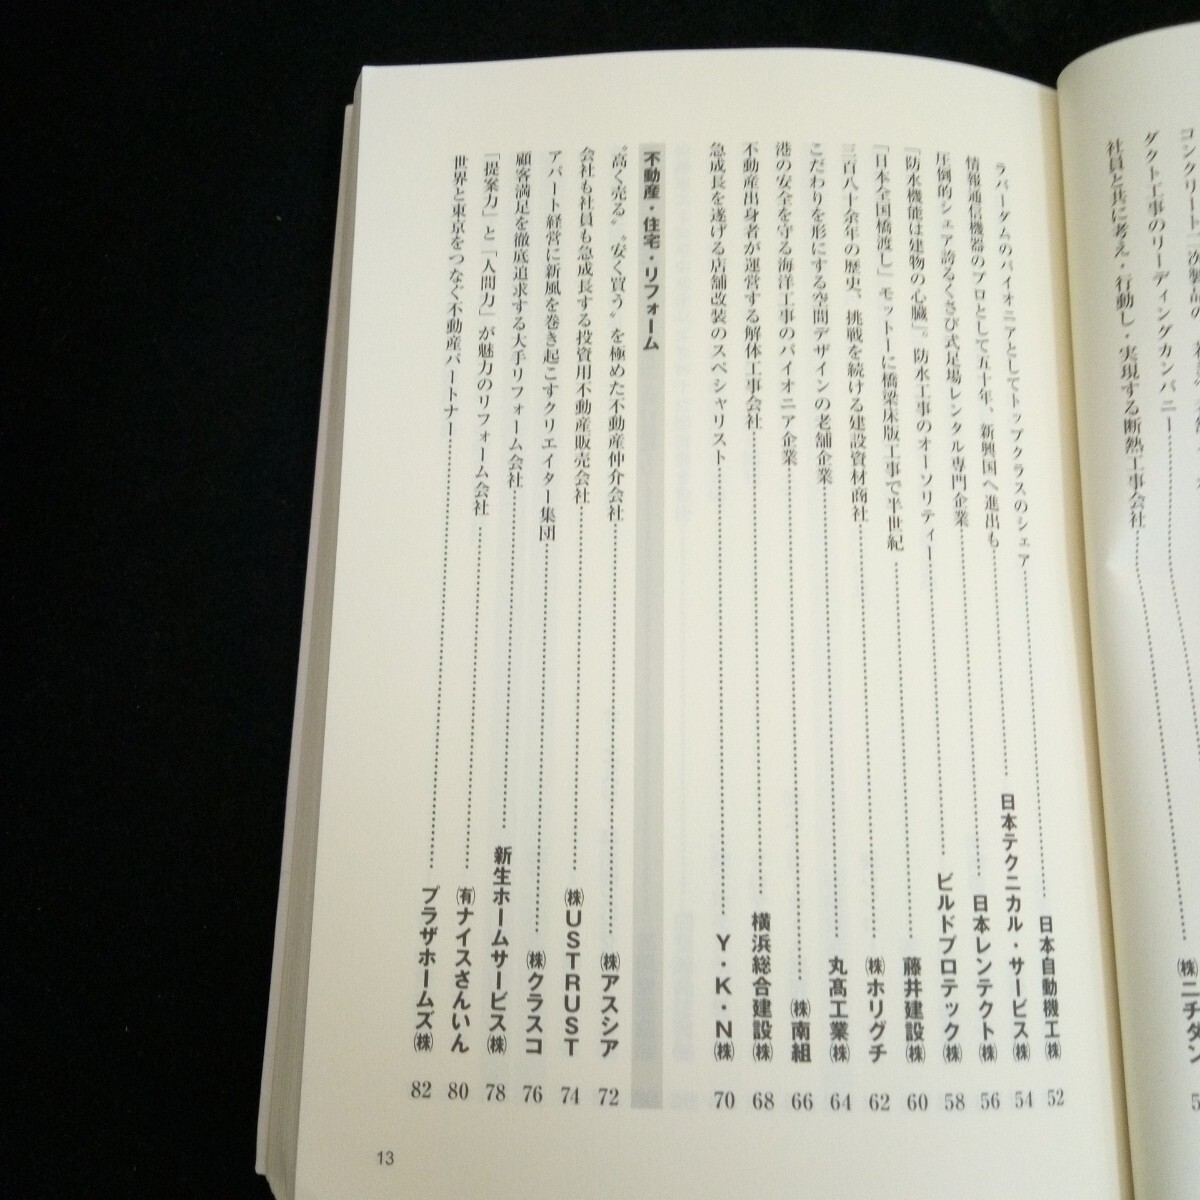 コンクリート二次製品の
ダクト工事のリーディングカンパニー
社員と共に考え・行動し・実現する断熱工事会社……㈱ニチダン
ラバーダムのパイオニアとしてトップクラスのシェア……日本自動機工㈱ 52
情報通信機器のプロとして五十年、新興国へ進出も……日本テクニカル・サービス㈱ 54
圧倒的シェア誇るくさび式足場レンタル専門企業……日本レンテクト㈱ 56
「防水機能は建物の心臓」。防水工事のオーソリティー……ビルドプロテック㈱ 58
「日本全国橋渡し」モットーに橋梁床版工事で半世紀……藤井建設㈱ 60
三百八十余年の歴史、挑戦を続ける建設資材商社……㈱ホリグチ 62
こだわりを形にする空間デザインの老舗企業……丸髙工業㈱ 64
港の安全を守る海洋工事のパイオニア企業……㈱南組 66
不動産出身者が運営する解体工事会社……横浜総合建設㈱ 68
急成長を遂げる店舗改装のスペシャリスト……Y・K・N㈱ 70
不動産・住宅・リフォーム
〝高く売る〟〝安く買う〟を極めた不動産仲介会社……㈱アスシア 72
会社も社員も急成長する投資用不動産販売会社……㈱USTRUST 74
アパート経営に新風を巻き起こすクリエイター集団……㈱クラスコ 76
顧客満足を徹底追求する大手リフォーム会社……新生ホームサービス㈱ 78
「提案力」と「人間力」が魅力のリフォーム会社……㈲ナイスさんいん 80
世界と東京をつなぐ不動産パートナー……プラザホームズ㈱ 82
13